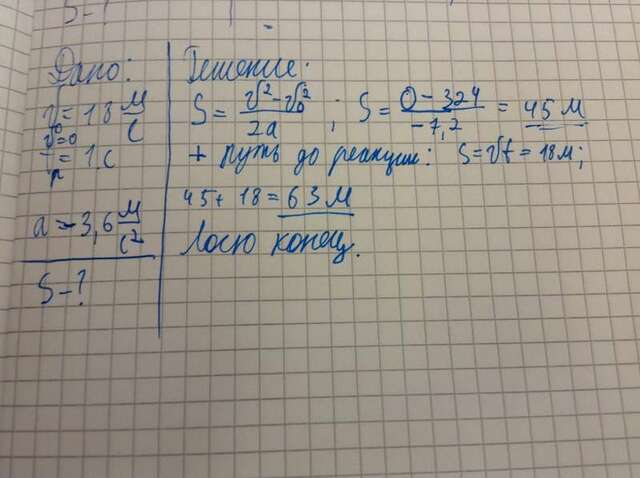 S-?
Дано:
v₀=18 м/с
v=0
tₙ=1 с
a=-3,6 м/с²
S-?
Решение:
S = (v²-v₀²)/2a ; S = (0-324)/-7,2 = 45 м
+ путь до реакции: S=vt=18м;
45+18=63 м
Лосю конец.